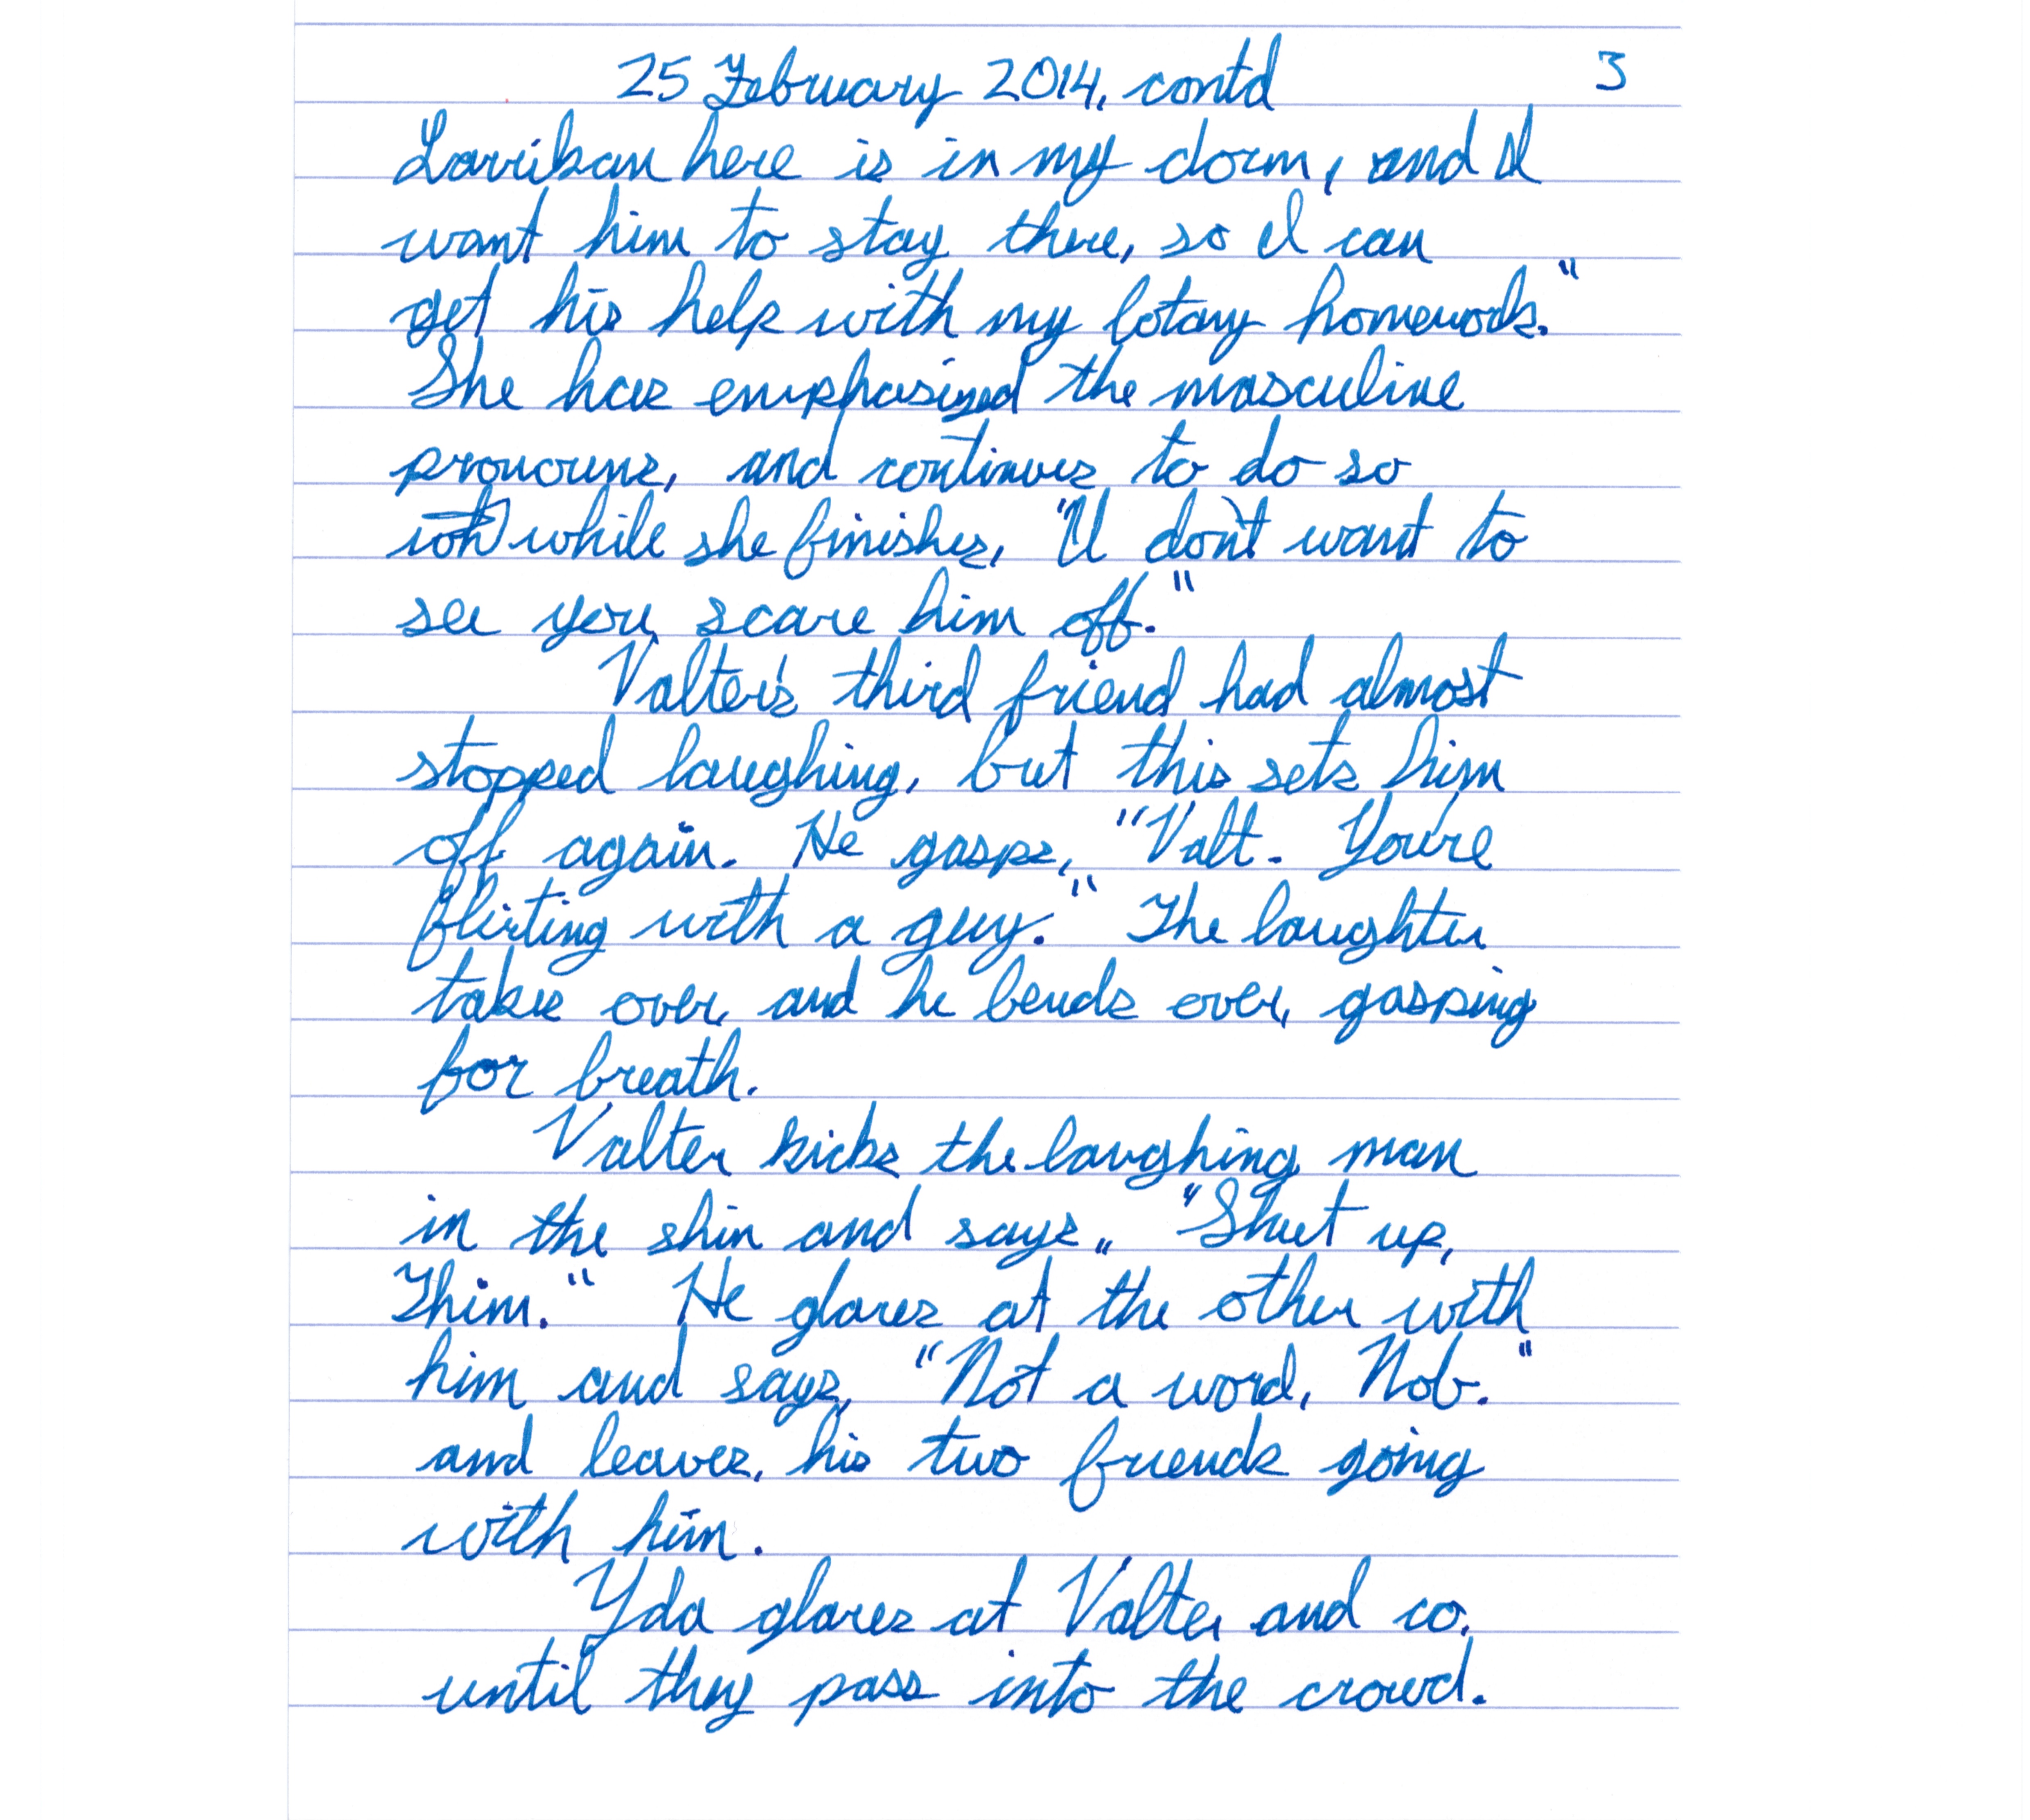 25 February 2014, contd 3
Larrikan here is in my dorm, and I
want him to stay there, so I can
get his help with my botany homework."
She has emphasized the masculine
pronouns, and continues to do so
while she finishes, "I don't want to
see you scare him off."
Valter's third friend had almost
stopped laughing, but this sets him
off again. He gasps, "Valt. You're
flirting with a guy." The laughter
takes over, and he bends over, gasping
for breath.
Valter kicks the laughing man
in the shin and says, "Shut up,
Thim." He glares at the other with
him and says, "Not a word, Nob."
and leaves, his two friends going
with him.
Yda glares at Valter and co.
until they pass into the crowd.